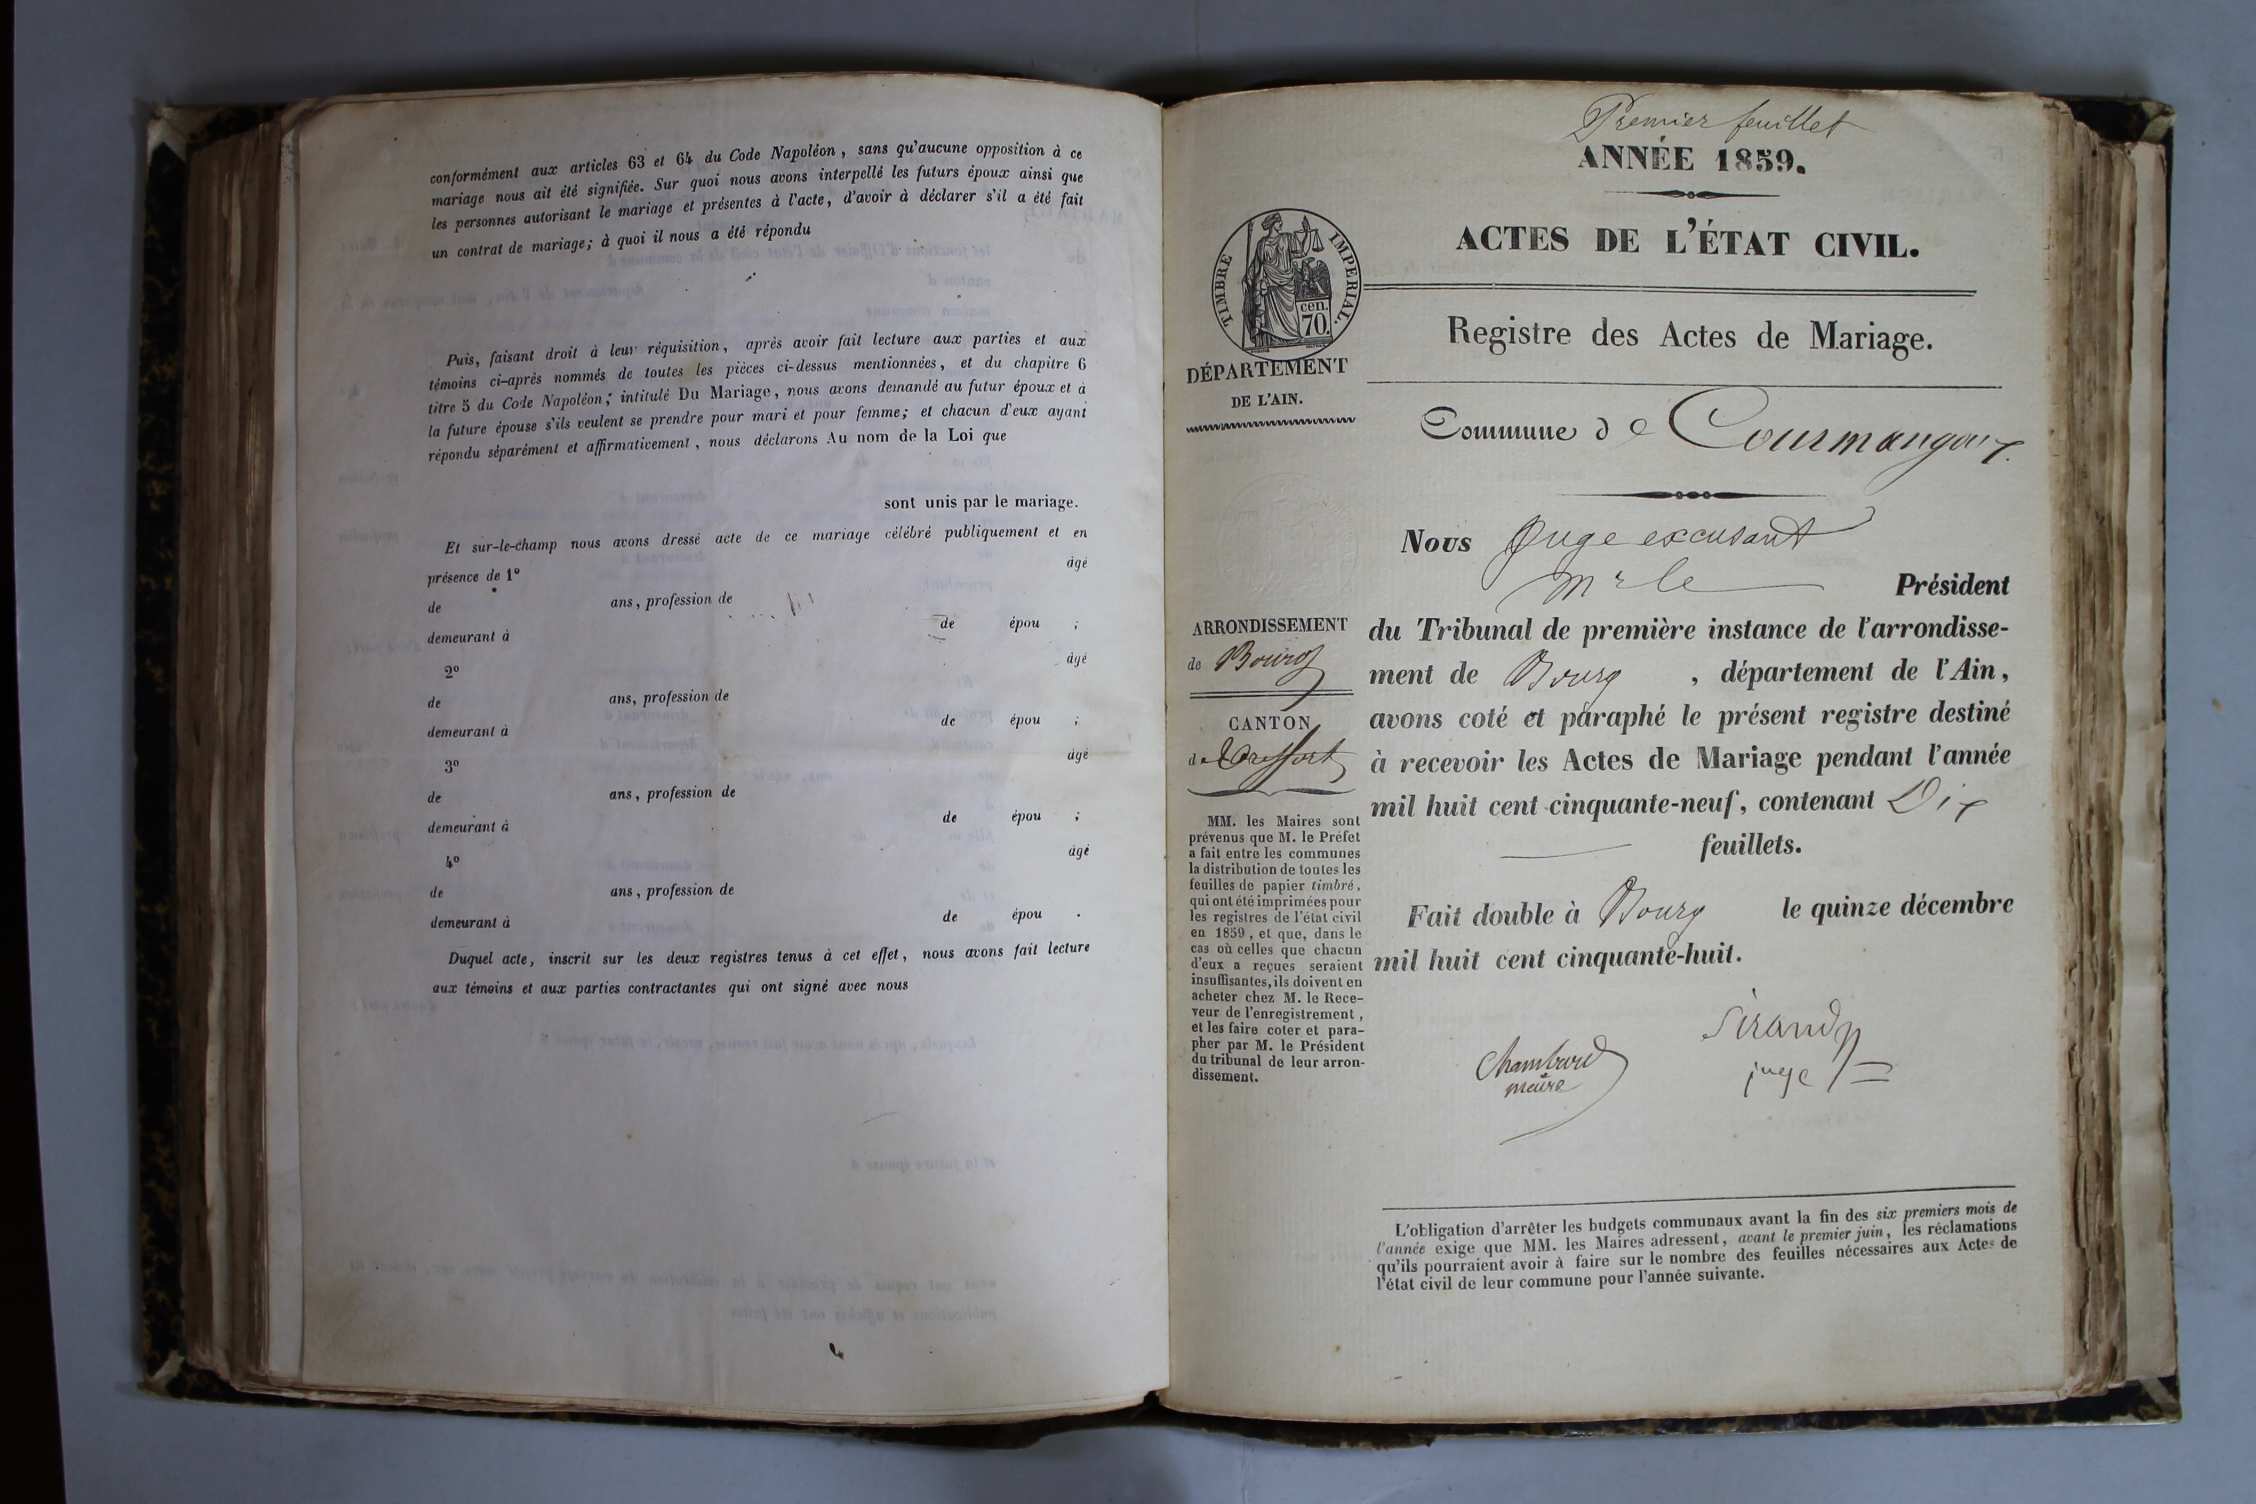 conformément aux articles 63 et 64 du Code Napoléon, sans qu'aucune opposition à ce
mariage nous ait été signifiée. Sur quoi nous avons interpellé les futurs époux ainsi que
les personnes autorisant le mariage et présentes à l'acte, d'avoir à déclarer s'il a été fait
un contrat de mariage; à quoi il nous a été répondu
Puis, faisant droit à leur réquisition, après avoir fait lecture aux parties et aux
témoins ci-après nommés de toutes les pièces ci-dessus mentionnées, et du chapitre 6
titre 5 du Code Napoléon, intitulé Du Mariage, nous avons demandé au futur époux et à
la future épouse s'ils veulent se prendre pour mari et pour femme; et chacun d'eux ayant
répondu séparément et affirmativement, nous déclarons Au nom de la Loi que
sont unis par le mariage.
Et sur-le-champ nous avons dressé acte de ce mariage célébré publiquement et en
présence de 1º âgé
de ans, profession de
demeurant à de épou ;
2º âgé
de ans, profession de
demeurant à de épou ;
3º âgé
de ans, profession de
demeurant à de épou ;
4º âgé
de ans, profession de
demeurant à de épou .
Duquel acte, inscrit sur les deux registres tenus à cet effet, nous avons fait lecture
aux témoins et aux parties contractantes qui ont signé avec nous
Premier feuillet
ANNÉE 1859.
ACTES DE L'ÉTAT CIVIL.
Registre des Actes de Mariage.
TIMBRE IMPERIAL.
cen.
70.
DÉPARTEMENT
DE L'AIN.
Commune de Courmangoux.
ARRONDISSEMENT
de Bourg
CANTON
de Treffort
MM. les Maires sont
prévenus que M. le Préfet
a fait entre les communes
la distribution de toutes les
feuilles de papier timbré,
qui ont été imprimées pour
les registres de l'état civil
en 1859, et que, dans le
cas où celles que chacun
d'eux a reçues seraient
insuffisantes, ils doivent en
acheter chez M. le Rece-
veur de l'enregistrement,
et les faire coter et para-
pher par M. le Président
du tribunal de leur arron-
dissement.
Nous Juge excusant
Mr le Président
du Tribunal de première instance de l'arrondisse-
ment de Bourg, département de l'Ain,
avons coté et paraphé le présent registre destiné
à recevoir les Actes de Mariage pendant l'année
mil huit cent cinquante-neuf, contenant Dix
feuillets.
Fait double à Bourg le quinze décembre
mil huit cent cinquante-huit.
Sirand
juge
Chambard
meire
L'obligation d'arrêter les budgets communaux avant la fin des six premiers mois de
l'année exige que MM. les Maires adressent, avant le premier juin, les réclamations
qu'ils pourraient avoir à faire sur le nombre des feuilles nécessaires aux Actes de
l'état civil de leur commune pour l'année suivante.